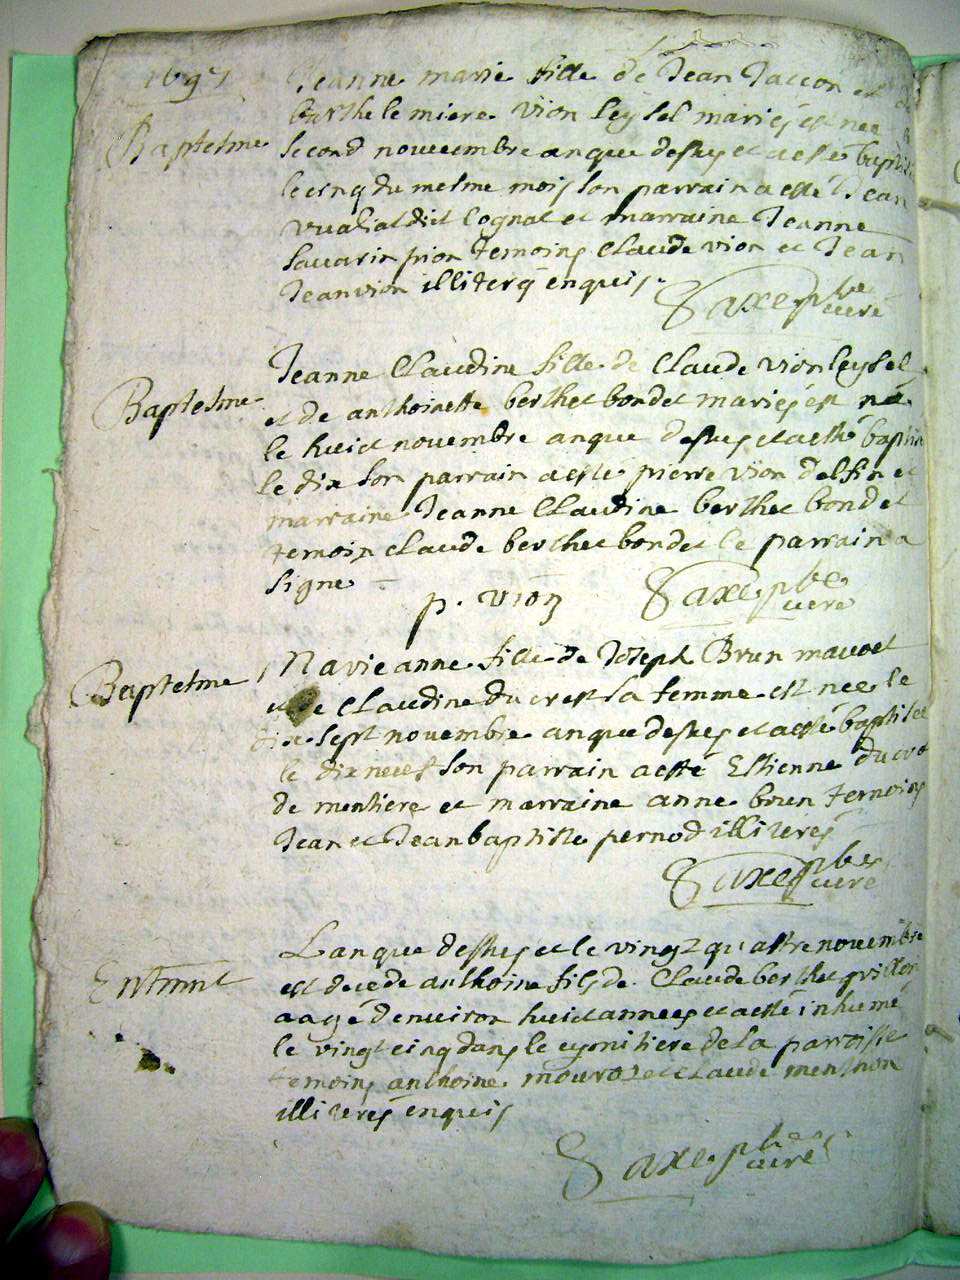 1697
Baptesme
Jeanne marie fille de Jean Jaccon et de
berthelemiere vion leysel mariés est nee le
second novembre an que dessus et a esté baptisée
le cinq du mesme mois son parrain a esté Jean
vualiat dict Cognat et marraine Jeanne
Savarin pion temoins Claude vion et Jean
Jean vion illiterés enquis
Saxe pbre
curé
Baptesme
Jeanne Claudine fille de Claude vion leysel
et de anthoinette berthet bondet mariés est née
le huict novembre an que dessus et a esté baptisée
le dix son parrain a esté pierre vion delfin et
marraine Jeanne Claudine berthet bondet
temoin claude berthet bondet le parrain a
signe
p. vion
Saxe pbre
curé
Baptesme
Marie anne fille de Joseph Brun mavoet
et de Claudine ducrest sa femme est nee le
dix sept novembre an que dessus et a esté baptisée
le dix neuf son parrain a esté Estienne ducro
de mentiere et marraine anne brun temoins
Jean et Jean baptiste pernod illiterés
Saxe pbre
curé
Entmnt
L an que dessus et le vingt quattre novembre
est decede anthoine fils de Claude berthet
aagé d'environ huict annees et a esté inhumé
le vingt cinq dans le cymitiere de la parroisse
temoins anthoine et Claude menthon
illiterés enquis
Saxe pbre
curé